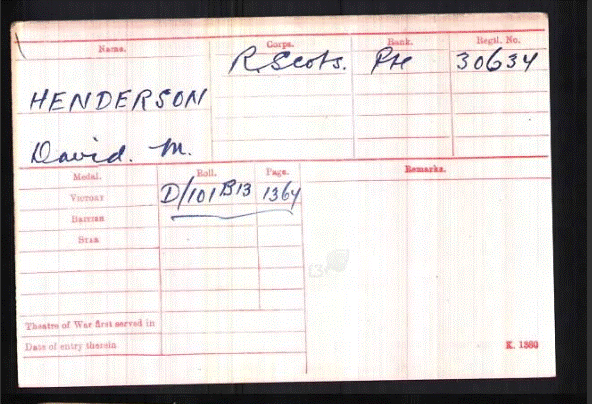 Name. Corps. Rank. Regtl. No.
R. Scots. Pte 30634
HENDERSON
David. M.
Medal. Roll. Page. Remarks.
VICTORY D/101 B13 1364
BRITISH
STAR
Theatre of War first served in
Date of entry therein
K. 1380